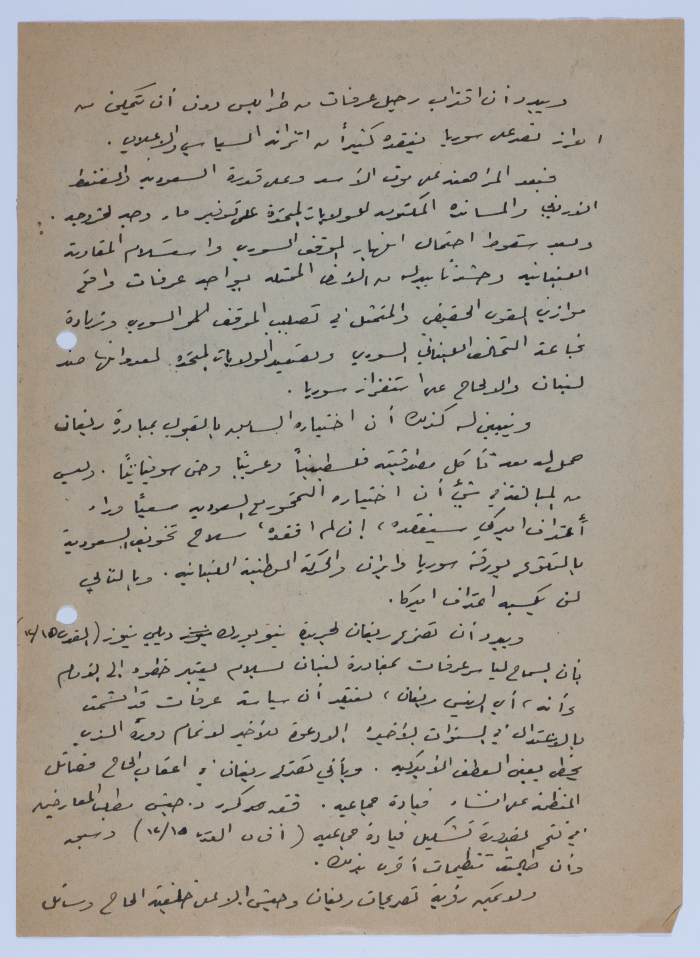 ويبدو أن اقتراب رحيل عرفات من طرابلس دون أن يتمكن من
احراز نصر على سوريا يفقده كثيراً من اتزانه السياسي والاعلامي.
فبعد المراهنة على موت الأسد وعلى قدرة السعودية والضغط
الفرنسي والمساندة المكتومة للولايات المتحدة على توفير ماء وجه لخروجه.
وبعد سقوط احتمال انهيار الموقف السوري واستسلام المقاومة
اللبنانية وحشد بديله من الأرض المحتلة يواجه عرفات واقع
موازين القوى الحقيقي والمتمثل في تصليب الموقف السوري وزيادة
مناعة التحالف اللبناني السوري وتصعيد الولايات المتحدة لعدوانها ضد
لبنان والالحاح على استفزاز سوريا.
ويتبين له كذلك أن اختياره السابق بالقبول بمبادرة ريغان
حمل له معه تآكل مصداقيته فلسطينياً وعربياً وحتى سوفياتياً. وليس
من المبالغة في شيء أن اختياره التمحور مع السعودية سعياً وراء
اعتراف اميركي سيفقده، إن لم افقده، سلاح تخويف السعودية
بالتلويح بورقة سوريا وايران والحركة الوطنية اللبنانية. وبالتالي
لن يكسبه اعتراف اميركا.
ويبدو أن تصريح ريغان لجريدة نيويورك ديلي نيوز (القدس ١٢/١٥)
بأن السماح لياسر عرفات بمغادرة لبنان بسلام يعتبر خطوة إلى الأمام
وأنه، أي الرئيس ريغان، يعتقد أن سياسة عرفات قد اتسمت
بالاعتدال في السنوات الأخيرة إلا دعوة للأخير لاتمام دوره الذي
يحظى بعين العطف الأميركية. ويأتي تصريح ريغان في اعقاب الحاح فصائل
المنظمة على انشاء قيادة جماعية. فقد كرر د. حبش مطلب المعارضين
في فتح بضرورة تشكيل قيادة جماعية (أ ف ب القدس ١٢/١٥) وسبق
وأن طالبت تنظيمات أخرى بذلك.
ولا يمكن رؤية تصريحات ريغان وحبش إلا على خلفية الحاح وسائل